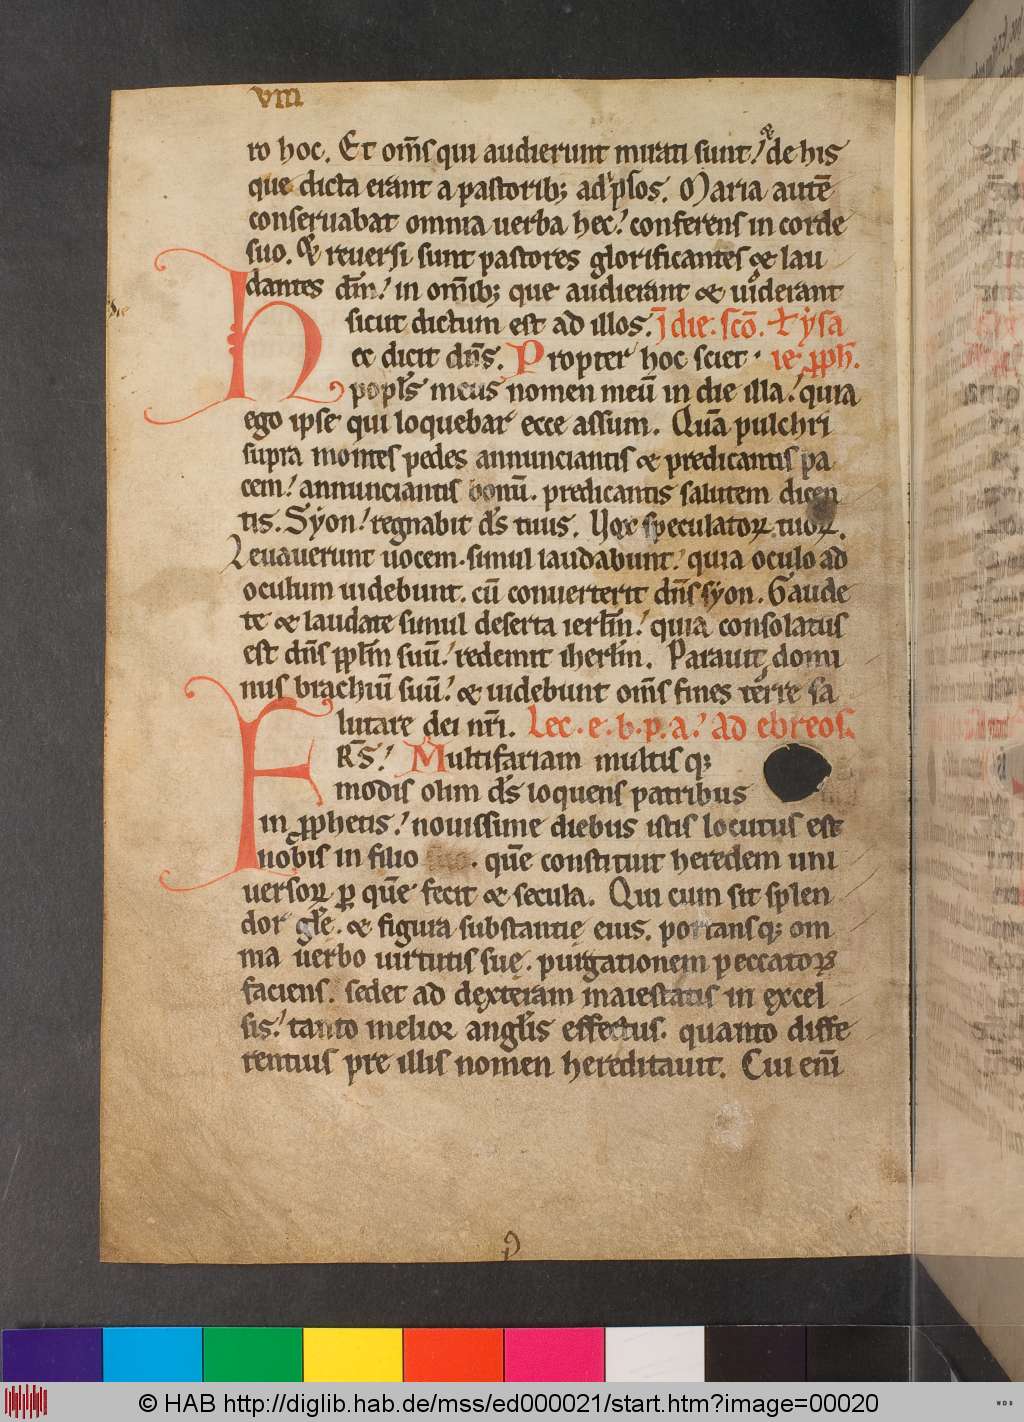 VIII
ro hoc. Et om̄s qui audierunt mirati sunt! ⁊ de his
que dicta erant a pastorib; ad ip̄sos. Maria autē
conseruabat omnia uerba hec! conferens in corde
suo. Et reuersi sunt pastores glorificantes ⁊ lau
dantes dm̄! in om̄ib; que audierant ⁊ uiderant
sicut dictum est ad illos. J̄ die. scō. L ysa
H ec dicit dn̄s. Propter hoc sciet ie. pph.
popl̄s meus nomen meū in die illa! quia
ego ipse qui loquebar ecce assum. Quā pulchri
supra montes pedes annunciantis ⁊ predicantis pa
cem! annunciantis bonū. predicantis salutem dicen
tis. Syon! regnabit ds̄ tuus. Uox speculatoꝝ tuoꝝ.
Leuauerunt uocem. simul laudabunt! quia oculo ad
oculum uidebunt. cū conuerterit dn̄s syon. Gaude
te ⁊ laudate simul deserta ierlm̄! quia consolatus
est dn̄s ppl̄m suū! redemit iherlm̄. Parauit domi
nus brachiū suū! ⁊ uidebunt om̄s fines terre sa
lutare dei nr̄i. Lec. e. b. p. a! ad ebreos.
F RS̄! Multifariam multis q;
modis olim ds̄ loquens patribus
in pphetis! nouissime diebus istis locutus est
nobis in filio suo. quē constituit heredem uni
uersoꝝ p̄ quē fecit ⁊ secula. Qui cum sit splen
dor gl̄e. ⁊ figura substantie eius. portansq; om
nia uerbo uirtutis sue. purgationem peccatoꝝ
faciens. sedet ad dexteram maiestatis in excel
sis! tanto melior angl̄is effectus. quanto diffe
rentius pre illis nomen hereditauit. Cui eni̅
© HAB http://diglib.hab.de/mss/ed000021/start.htm?image=00020